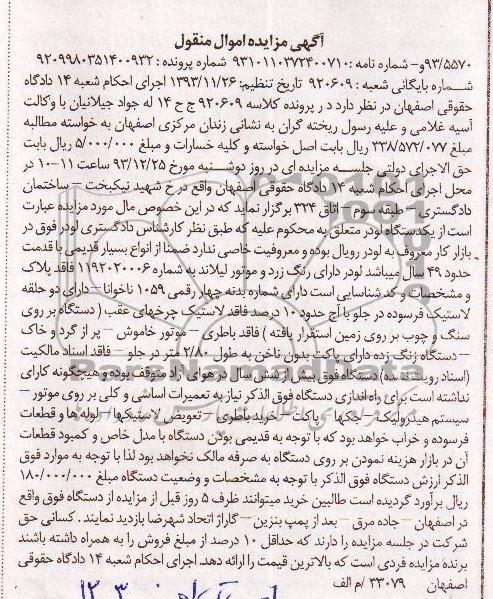 آگهی مزایده اموال منقول
۹۳/۵۵۷۰و- شماره نامه :۹۳۱۰۱۱۰۳۷۲۴۰۰۷۱۰ شماره پرونده : ۹۲۰۹۹۸۰۳۵۱۴۰۰۹۳۲
شماره بایگانی شعبه : ۹۲۰۶۰۹ تاریخ تنظیم: ۱۳۹۳/۱۱/۲۶ اجرای احکام شعبه ۱۴ دادگاه
حقوقی اصفهان در نظر دارد در پرونده کلاسه ۹۲۰۶۰۹ ج ح ۱۴ له جواد جیلانیان با وکالت
آسیه غلامی و علیه رسول ریخته گران به نشانی زندان مرکزی اصفهان به خواسته مطالبه
مبلغ ۳۳۸/۵۷۲/۰۷۷ ریال بابت اصل خواسته و کلیه خسارات و مبلغ ۵/۰۰۰/۰۰۰ ریال بابت
حق الاجرای دولتی جلسه مزایده ای در روز دوشنبه مورخ ۹۳/۱۲/۲۵ ساعت ۱۱-۱۰ در
محل اجرای احکام شعبه ۱۴ دادگاه حقوقی اصفهان واقع در خ شهید نیکبخت – ساختمان
دادگستری – طبقه سوم – اتاق ۳۲۴ برگزار نماید که در این خصوص مال مورد مزایده عبارت
است از یکدستگاه لودر متعلق به محکوم علیه که طبق نظر کارشناس دادگستری لودر فوق در
بازار کار معروف به لودر رویال بوده و معروفیت خاصی ندارد ضمنا از انواع بسیار قدیمی با قدمت
حدود ۴۹ سال میباشد لودر دارای رنگ زرد و موتور لیلاند به شماره ۱۱۹۲۰۲۰۰۰۶ فاقد پلاک
و مشخصات و کد شناسایی است دارای شماره بدنه چهار رقمی ۱۰۵۹ ناخوانا – دارای دو حلقه
لاستیک فرسوده در جلو با آج حدود ۱۰ درصد فاقد لاستیک چرخهای عقب ( دستگاه بر روی
سنگ و چوب بر روی زمین استقرار یافته ) فاقد باطری – موتور خاموش – پر از گرد و خاک
– دستگاه زنگ زده دارای پاکت بدون ناخن به طول ۲/۸۰ متر در جلو – فاقد اسناد مالکیت
(اسناد رویت نشده) دستگاه فوق بیش از شش سال در هوای آزاد متوقف بوده و هیچگونه کارای
نداشته است برای راه اندازی دستگاه فوق الذکر نیاز به تعمیرات اساسی و کلی بر روی موتور –
سیستم هیدرولیک – جکها – پاکت – خرید باطری – تعویض لاستیکها – لوله ها و قطعات
فرسوده و خراب خواهد بود که با توجه به قدیمی بودن دستگاه با مدل خاص و کمبود قطعات
آن در بازار هزینه نمودن بر روی دستگاه به صرفه مالک نخواهد بود لذا با توجه به موارد فوق
الذکر ارزش دستگاه فوق الذکر با توجه به مشخصات و وضعیت دستگاه مبلغ ۱۸۰/۰۰۰/۰۰۰
ریال برآورد گردیده است طالبین خرید میتوانند ظرف ۵ روز قبل از مزایده از دستگاه فوق واقع
در اصفهان – جاده مرق – بعد از پمپ بنزین – گاراژ اتحاد شهرضا بازدید نمایند . کسانی حق
شرکت در جلسه مزایده را دارند که حداقل ۱۰ درصد از مبلغ فروش را به همراه داشته باشند
برنده مزایده فردی است که بالاترین قیمت را ارائه دهد. اجرای احکام شعبه ۱۴ دادگاه حقوقی
اصفهان ۳۳۰۷۹ /م الف